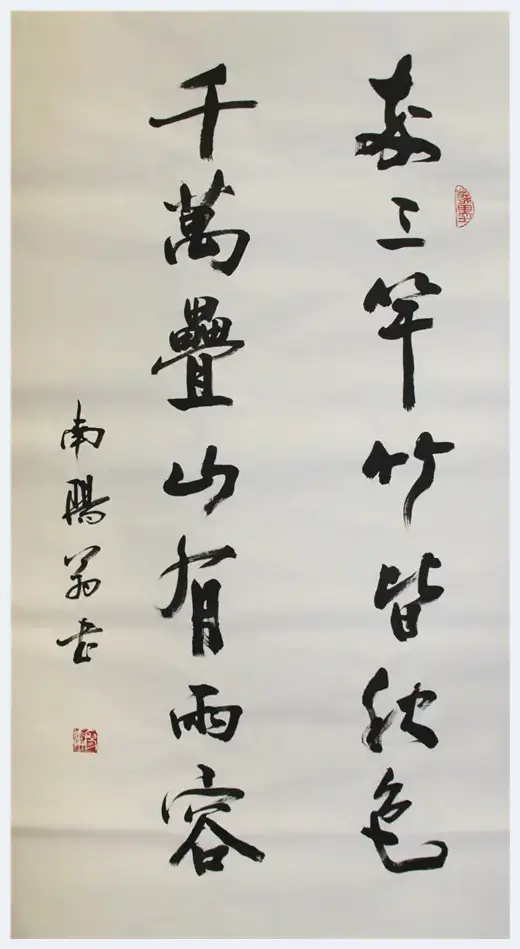 三竿竹皆秋色
千萬疊山有雨容
南翁書